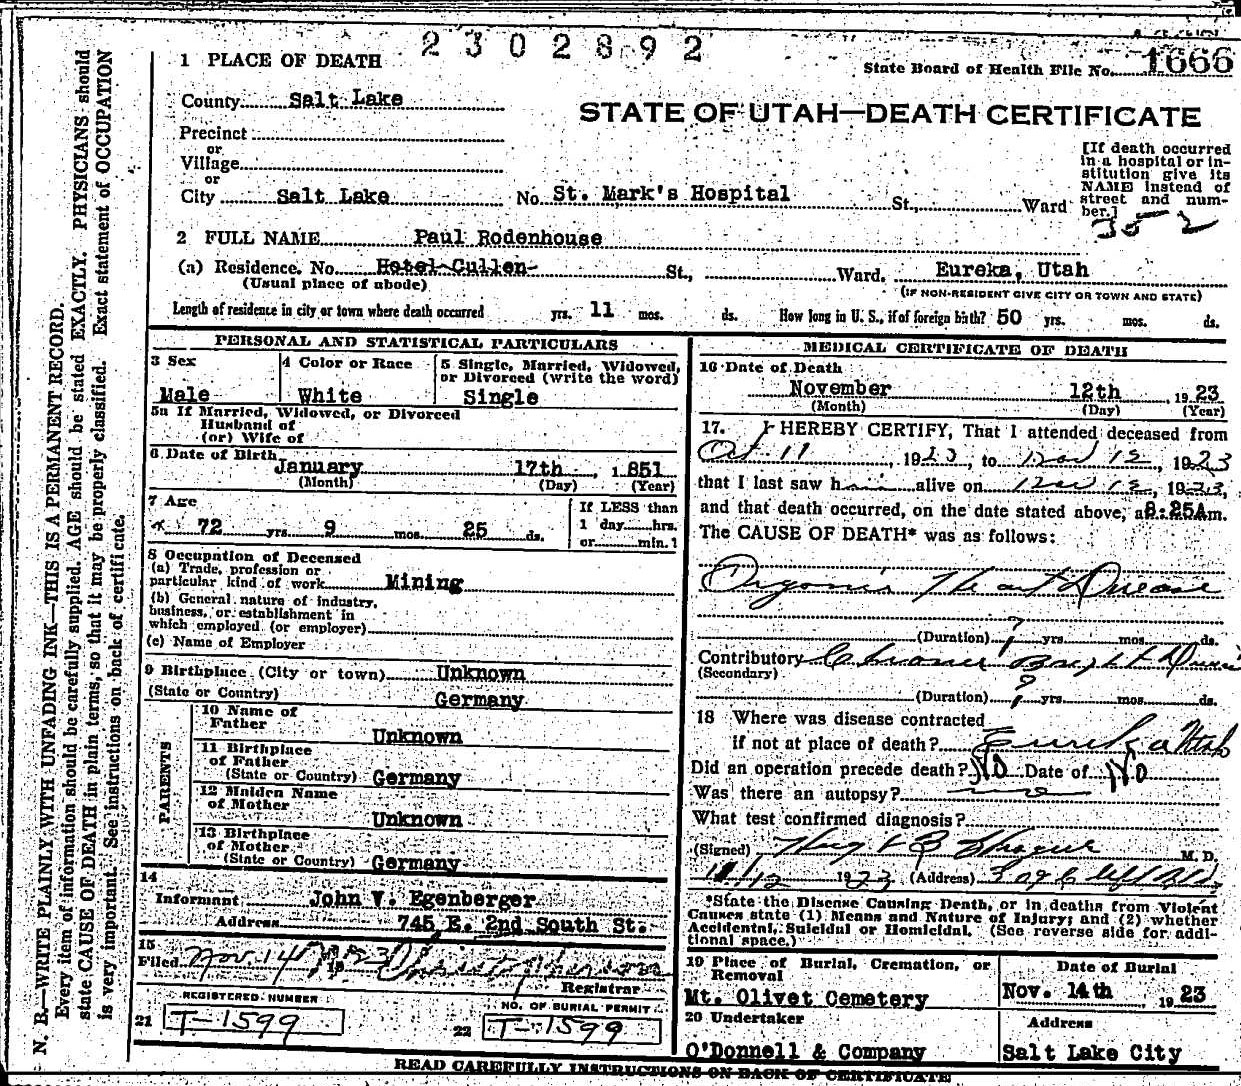 2302892
1 PLACE OF DEATH
State Board of Health File No. 1666
County Salt Lake
STATE OF UTAH—DEATH CERTIFICATE
Precinct
or
Village
or
City Salt Lake No. St. Mark's Hospital St., Ward
[If death occurred
in a hospital or in-
stitution give its
NAME instead of
street and num-
ber.]
352
2 FULL NAME Paul Rodenhouse
(a) Residence. No. Hotel Cullen St., Ward, Eureka, Utah
(Usual place of abode) (IF NON-RESIDENT GIVE CITY OR TOWN AND STATE)
Length of residence in city or town where death occurred yrs. 11 mos. ds. How long in U. S., if of foreign birth? 50 yrs. mos. ds.
PERSONAL AND STATISTICAL PARTICULARS
3 Sex
Male
4 Color or Race
White
5 Single, Married, Widowed,
or Divorced (write the word)
Single
5a If Married, Widowed, or Divorced
Husband of
(or) Wife of
6 Date of Birth
January 17th, 1851
(Month) (Day) (Year)
7 Age
72 yrs. 9 mos. 25 ds.
If LESS than
1 day hrs.
or min.?
8 Occupation of Deceased
(a) Trade, profession or
particular kind of work Mining
(b) General nature of industry,
business, or establishment in
which employed (or employer)
(c) Name of Employer
9 Birthplace (City or town) Unknown
(State or Country) Germany
PARENTS
10 Name of
Father Unknown
11 Birthplace
of Father
(State or Country) Germany
12 Maiden Name
of Mother Unknown
13 Birthplace
of Mother
(State or Country) Germany
14
Informant John V. Egenberger
Address 745 E. 2nd South St.
15
Filed Nov. 14
Registrar
REGISTERED NUMBER
21 T-1599
NO. OF BURIAL PERMIT
22 T-1599
MEDICAL CERTIFICATE OF DEATH
16 Date of Death
November 12th, 1923
(Month) (Day) (Year)
17. I HEREBY CERTIFY, That I attended deceased from
Oct 11, 1923, to Nov 12, 1923
that I last saw him alive on Nov 12, 1923,
and that death occurred, on the date stated above, at 8:25A m.
The CAUSE OF DEATH* was as follows:
Organic Heart Disease
(Duration) ? yrs. mos. ds.
Contributory Chronic Bright Disease
(Secondary)
(Duration) ? yrs. mos. ds.
18 Where was disease contracted
if not at place of death? Eureka Utah
Did an operation precede death? NO Date of NO
Was there an autopsy? no
What test confirmed diagnosis?
(Signed) M. D.
11/12 1923 (Address)
*State the Disease Causing Death, or in deaths from Violent
Causes state (1) Means and Nature of Injury; and (2) whether
Accidental, Suicidal or Homicidal. (See reverse side for addi-
tional space.)
19 Place of Burial, Cremation, or
Removal
Mt. Olivet Cemetery
Date of Burial
Nov. 14th 1923
20 Undertaker
O'Donnell & Company
Address
Salt Lake City
READ CAREFULLY INSTRUCTIONS ON BACK OF CERTIFICATE
N. B.—WRITE PLAINLY WITH UNFADING INK—THIS IS A PERMANENT RECORD.
Every item of information should be carefully supplied. AGE should be stated EXACTLY. PHYSICIANS should
state CAUSE OF DEATH in plain terms, so that it may be properly classified. Exact statement of OCCUPATION
is very important. See instructions on back of certificate.